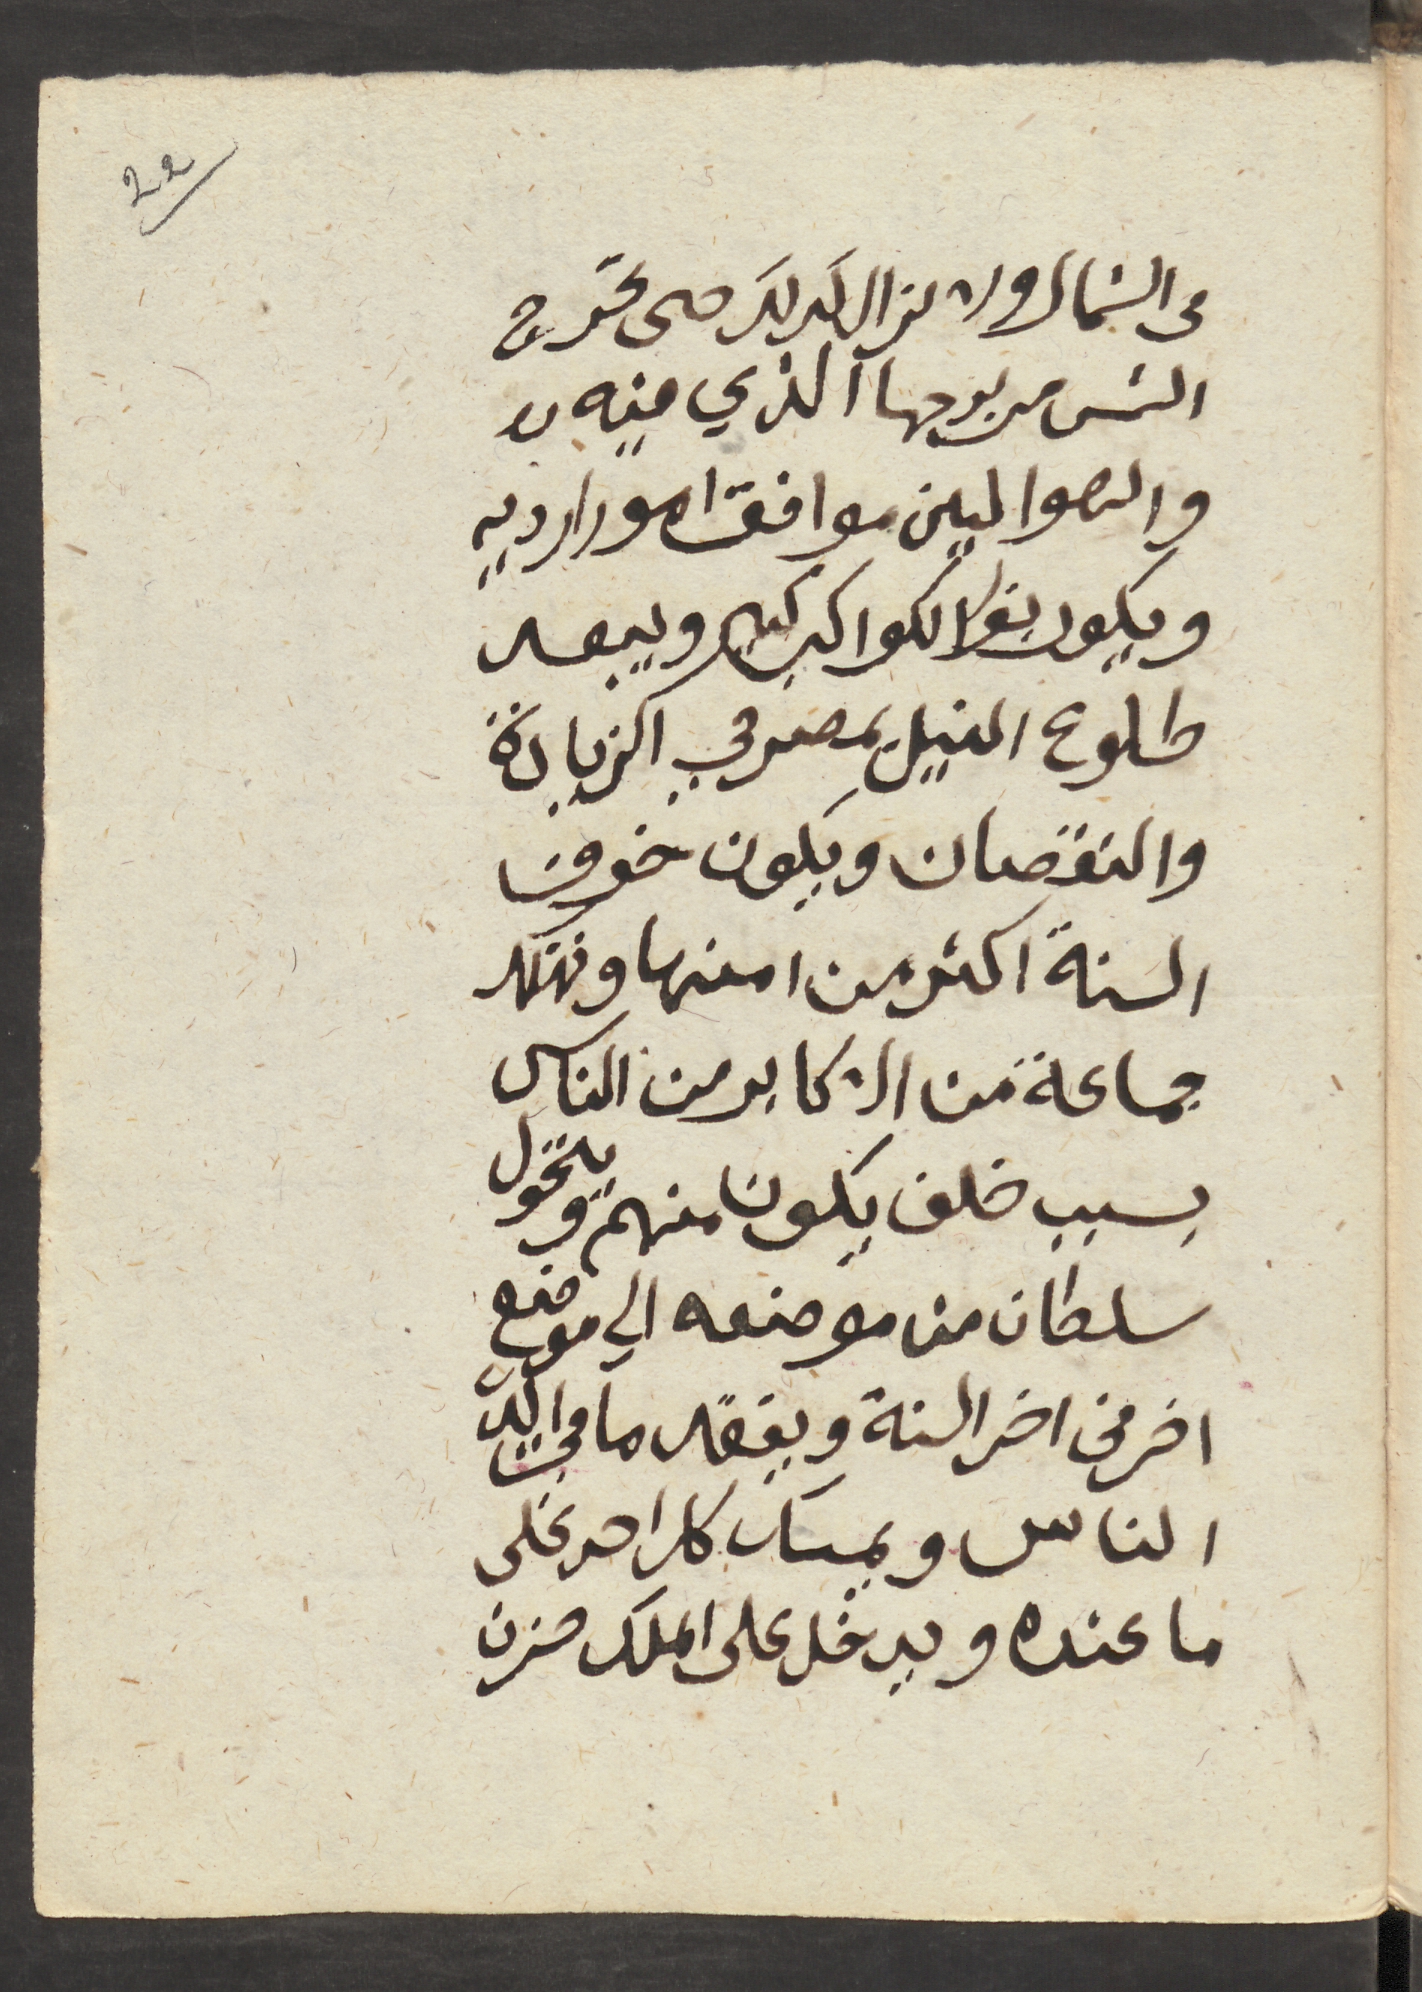 22
فى الشمال ولا يزال كدلك حتى تخرج
الشمس من برجها الذي فيه
والهوا ليس موافق امور اردية
ويكون الكواكب كثير ويبعد
طلوع النيل بمصر في الزيادة
والنقصان ويكون خوف
السنة اكثر من امنها وتهلك
جماعة من الاكابر من الناس
بسبب خلف يكون منهم ويتحول
سلطان من موضعه الي موضع
اخر في اخر السنة ويفقد ما في ايد
الناس ويمسك كل احد على
ما عنده ويدخل على الملك حزن